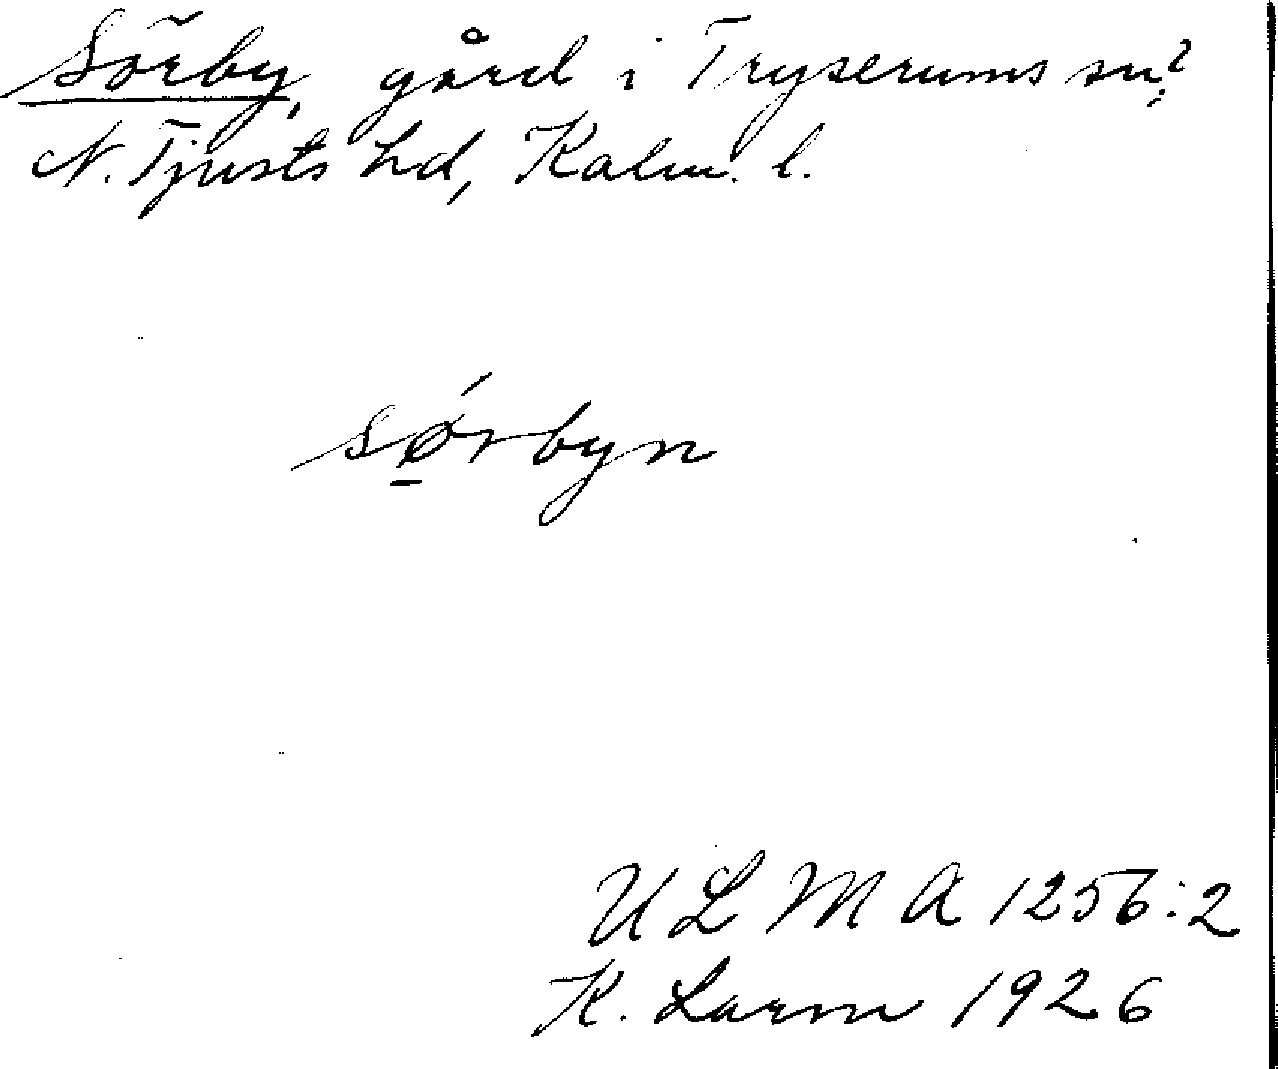 Sörby, gård i Tryserums sn?
N. Tjusts hd, Kalm. l.
sǿ̠rbyn
ULMA 1256:2
K. Larm 1926